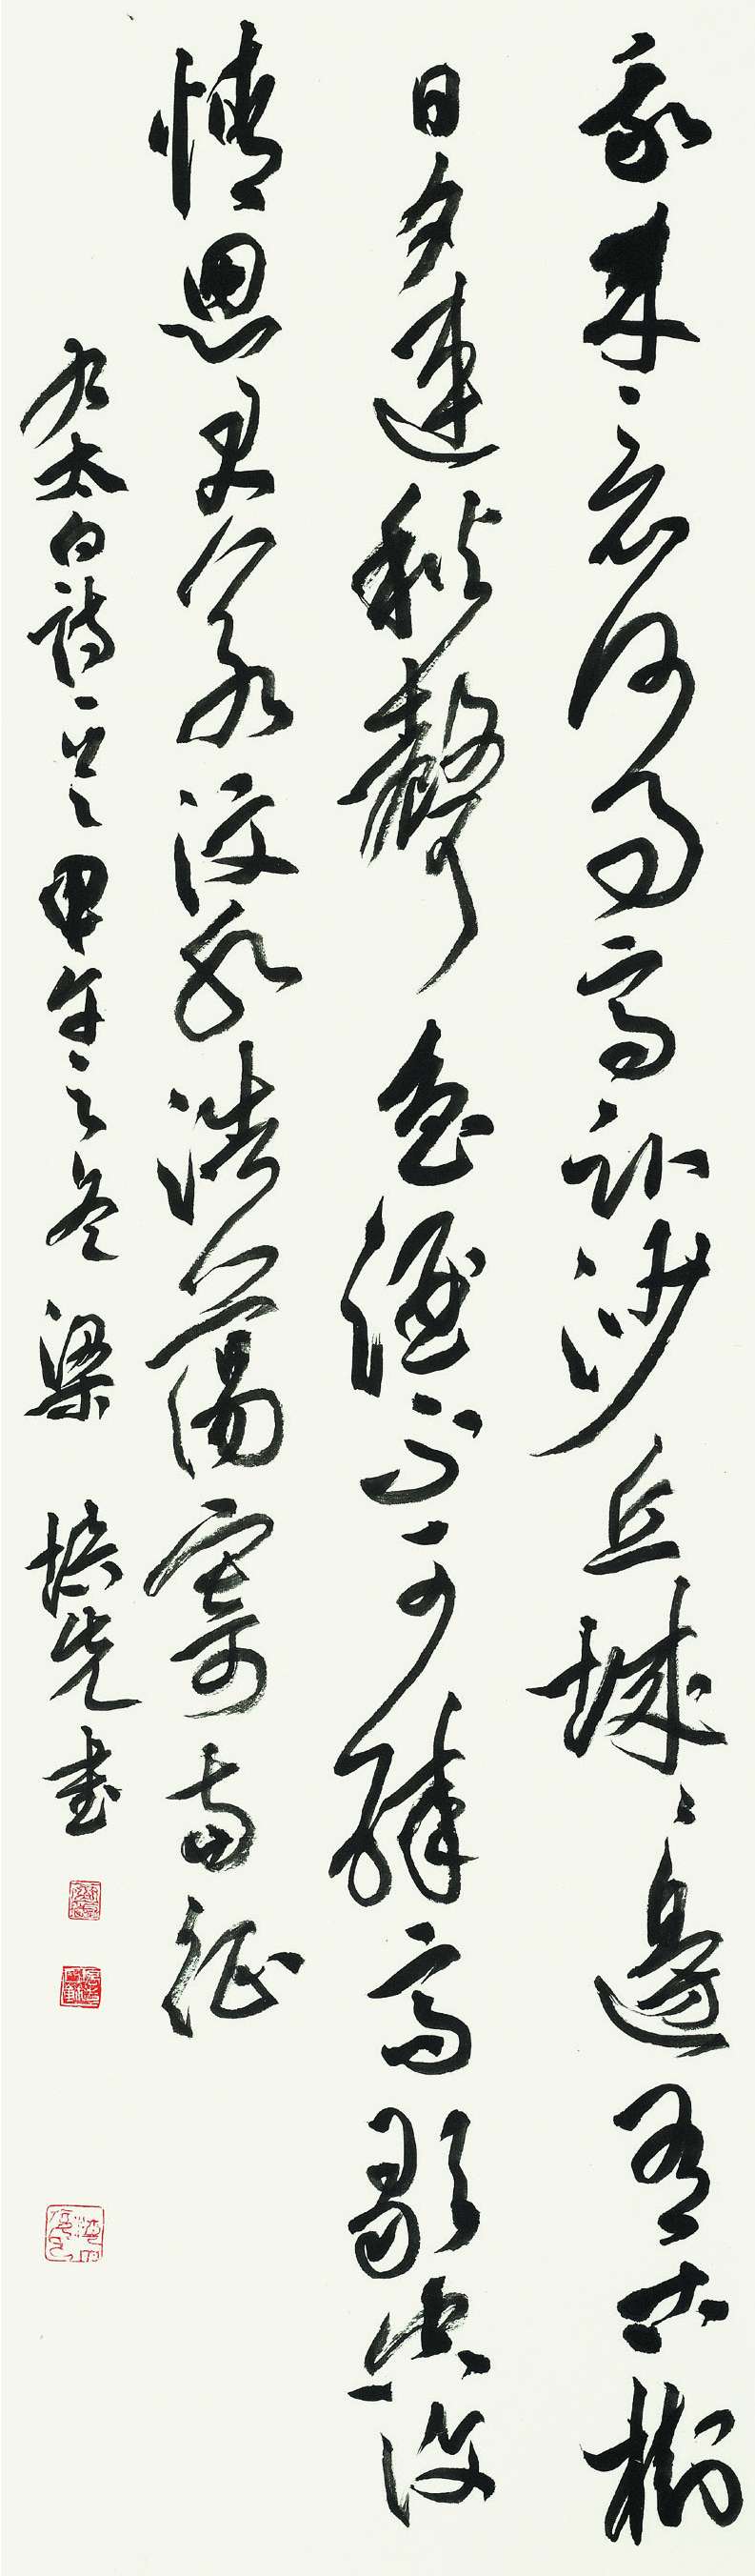 我来竟何事高卧沙丘城々邊有古樹
日夕連秋聲魯酒不可醉齊歌空復
情思君若汶水浩蕩寄南征
右太白詩一首甲午之冬梁培先書